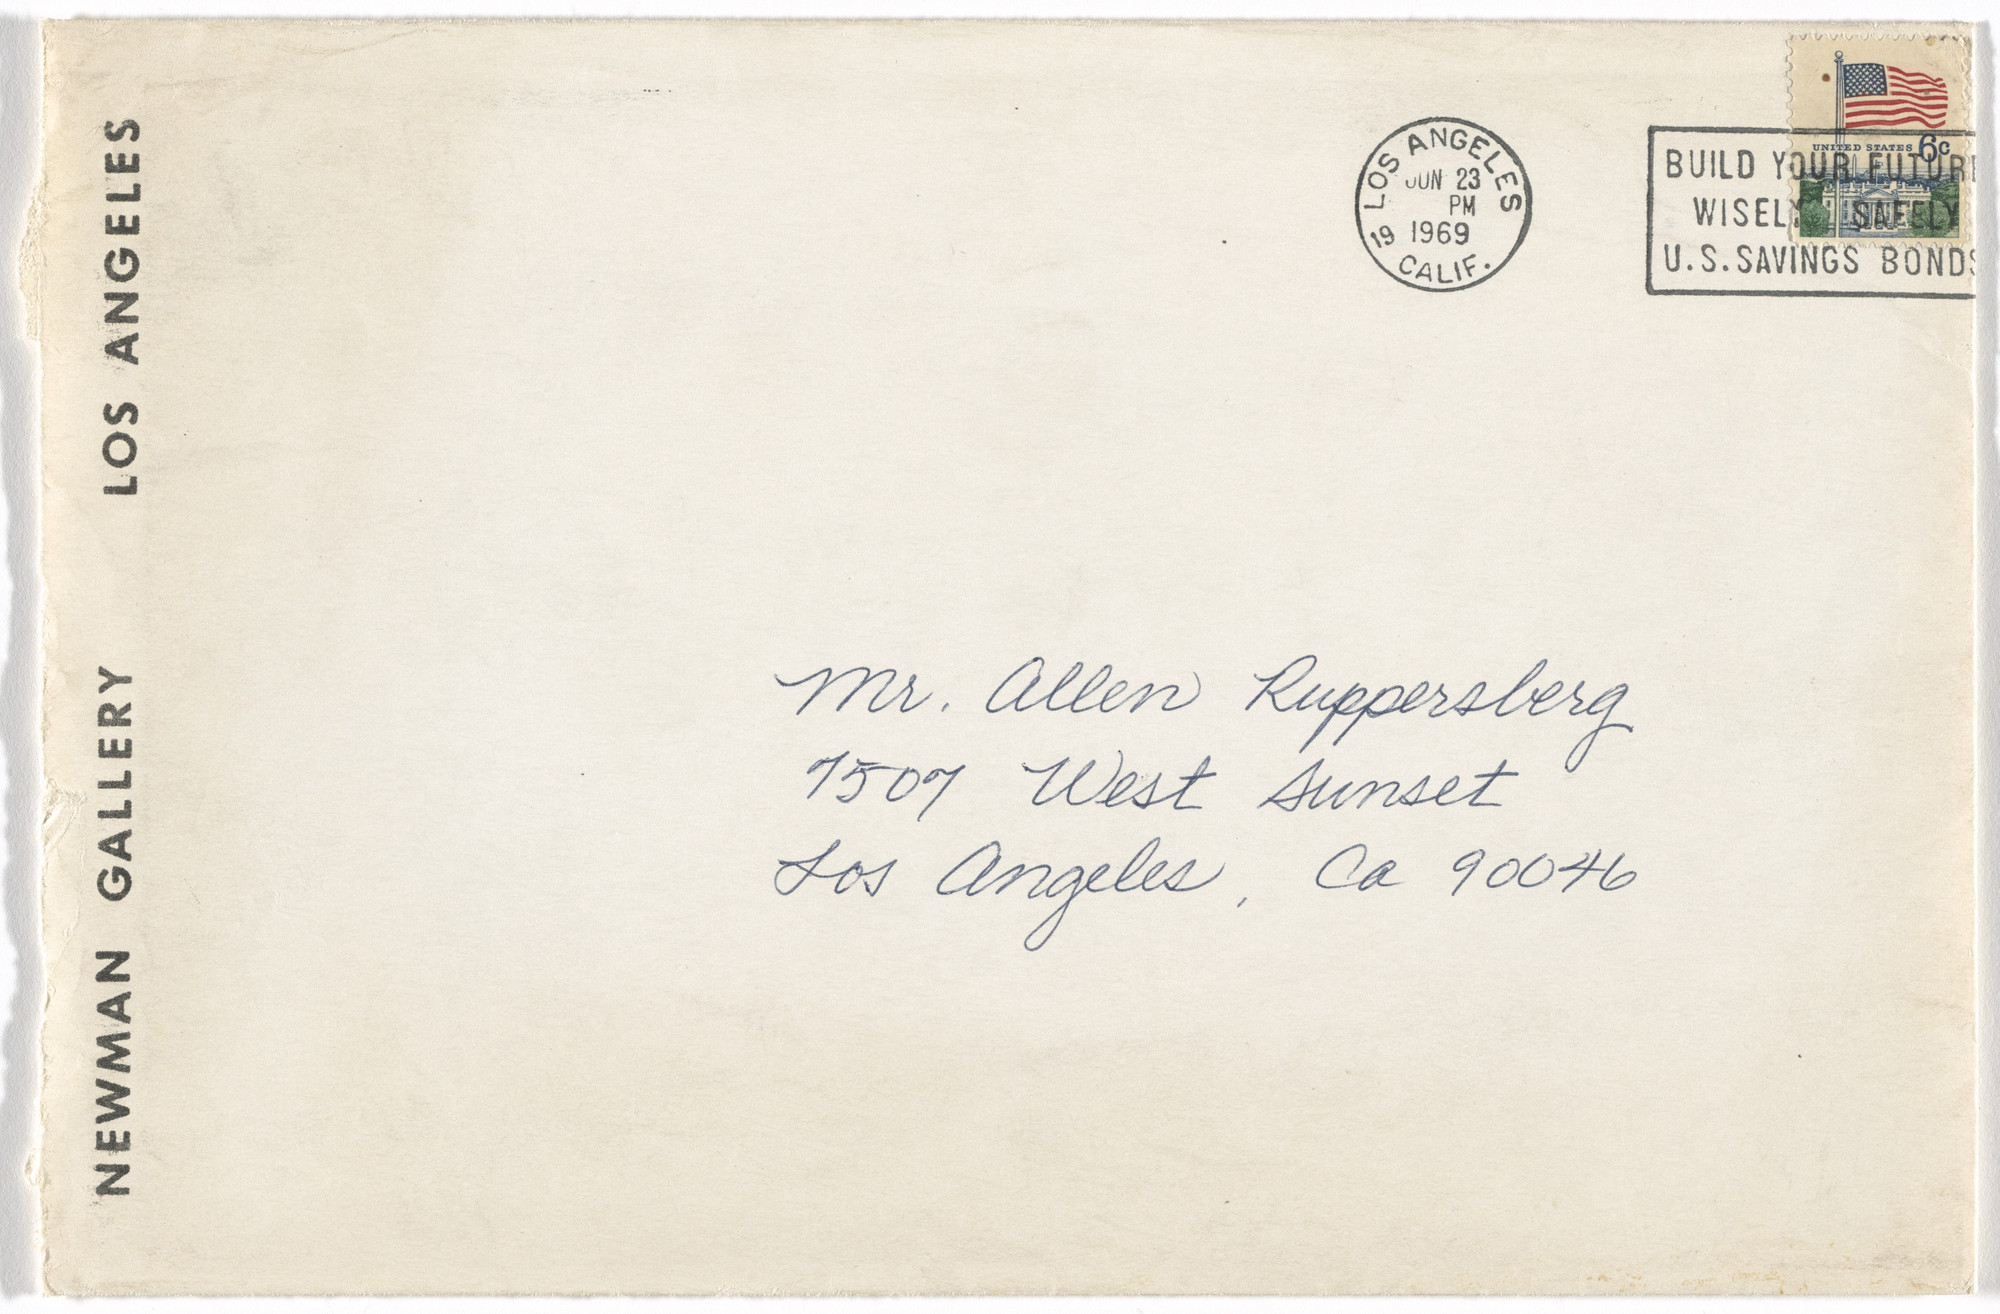 NEWMAN GALLERY LOS ANGELES
LOS ANGELES
JUN 23
PM
19 1969
CALIF.
UNITED STATES 6c
BUILD YOUR FUTURE
WISELY SAFELY
U.S. SAVINGS BONDS
Mr. Allen Ruppersberg
7507 West Sunset
Los Angeles, Ca 90046